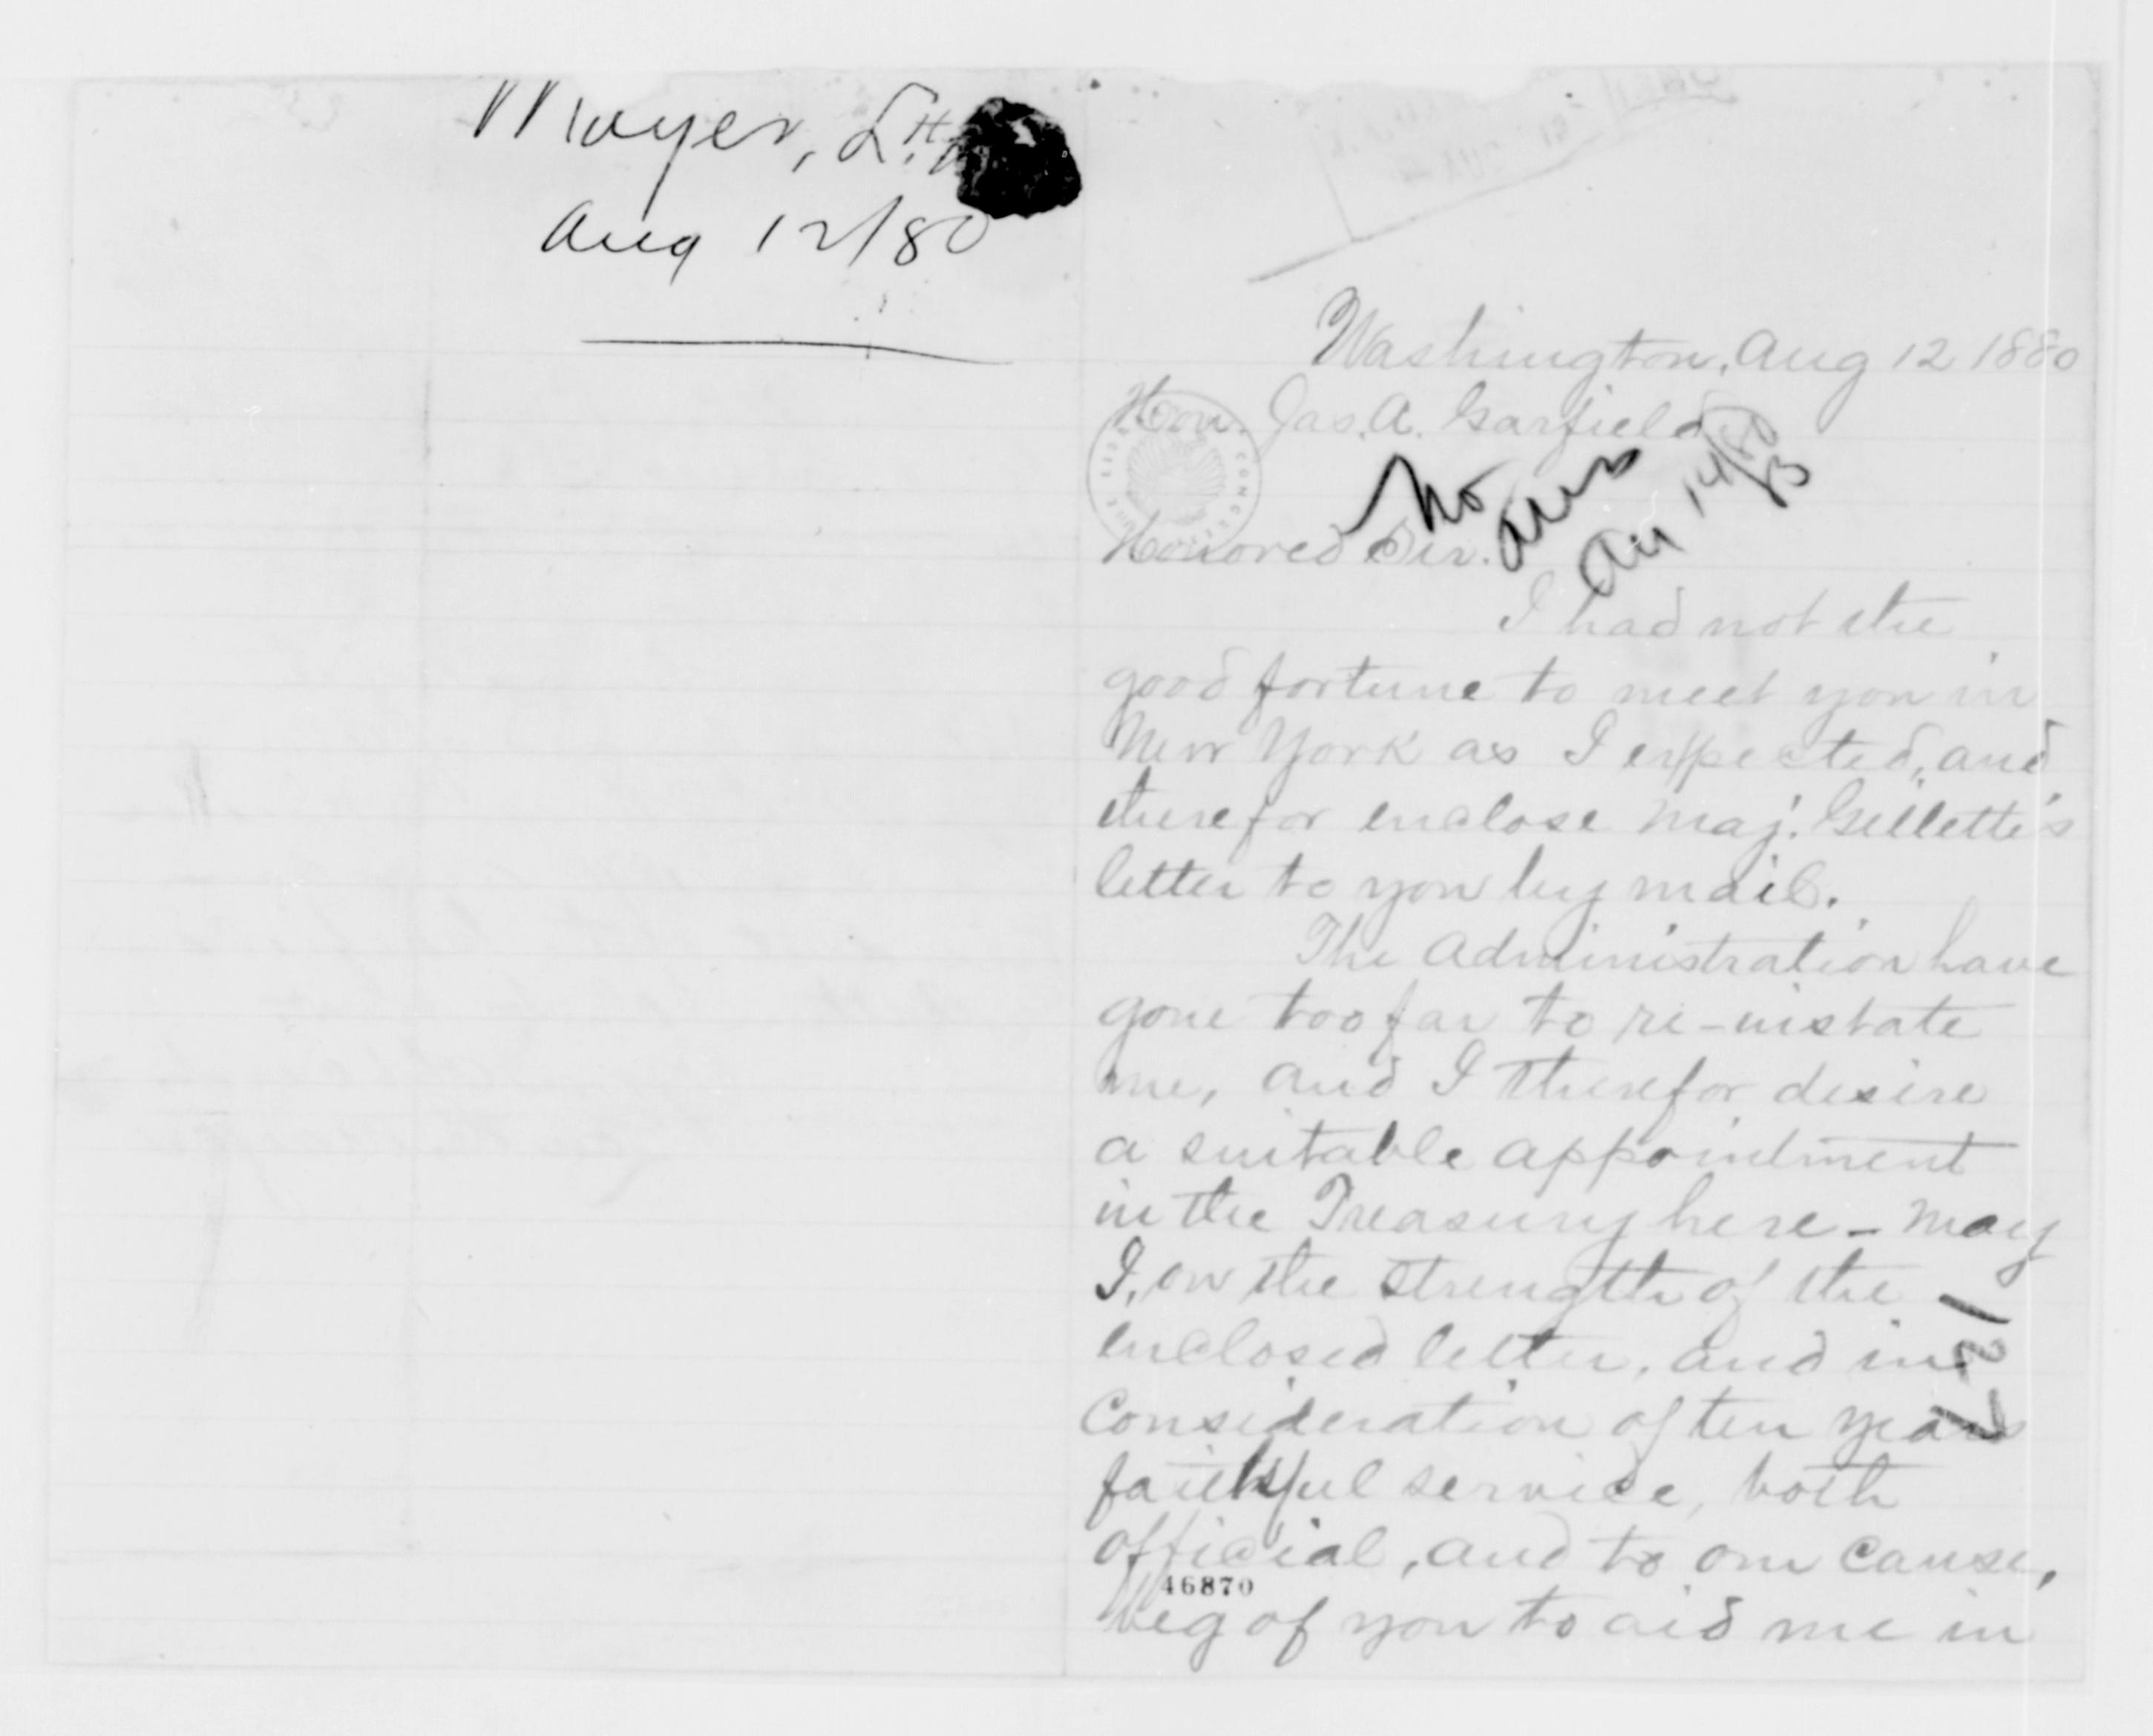 Mayer, L.H.
Aug 12/80
Washington, Aug 12 1880
Hon. Jas. A. Garfield
No
Ans
Au 14/80
B
Honored Sir.
I had not the
good fortune to meet you in
New York as I expected, and
therefor enclose Maj. Gillette's
letter to you by mail.
The Administration have
gone too far to re-instate
me, and I therefor desire
a suitable appointment
in the Treasury here - May
I, on the strength of the
enclosed letter, and in
Consideration of ten years
faithful service, both
official, and to our cause,
beg of you to aid me in
127
46870